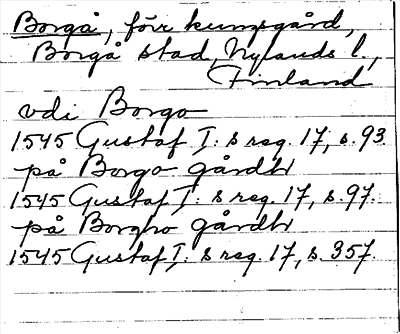 Borgå, förr kungsgård,
Borgå stad, Nylands l.,
Finland
vdi Borgo
1545 Gustaf I: s reg. 17, s. 93.
på Borgo gårdh
1545 Gustaf I: s reg. 17, s. 97.
på Borgho gårdh
1545 Gustaf I: s reg. 17, s. 357.